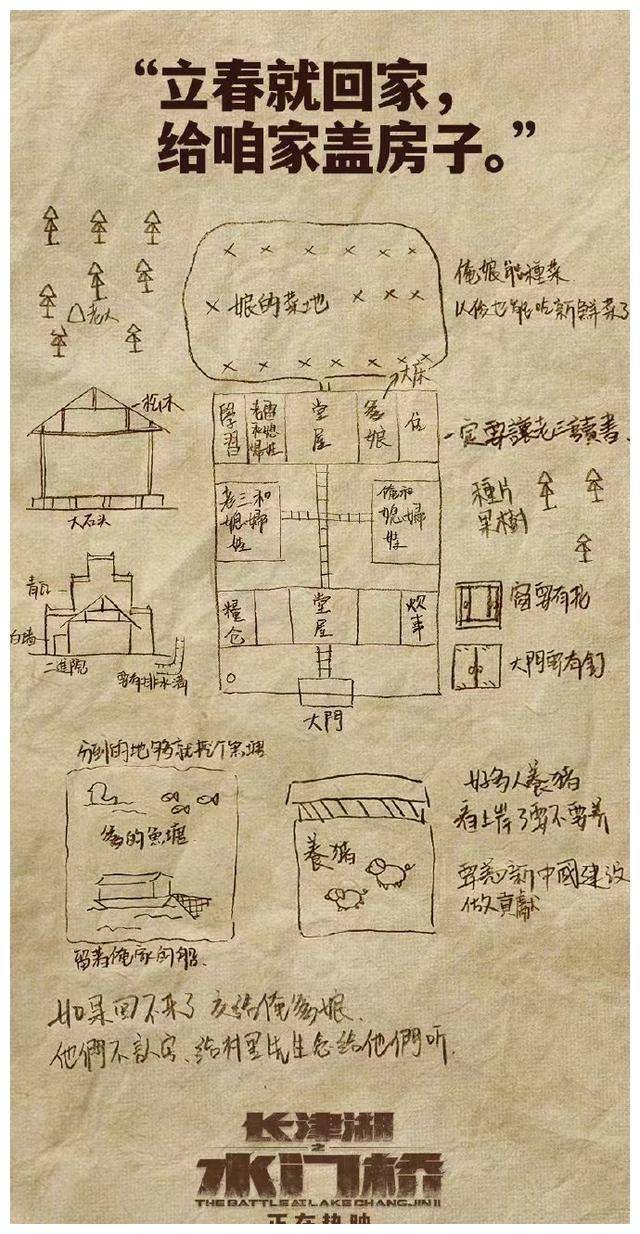 “立春就回家，
给咱家盖房子。”
娘的菜地
俺娘能種菜
以後也能吃新鮮菜了
老大
大床
學習
堂屋
爹娘
住
一定要讓老三讀書
松木
大石头
老三和
媳婦
住
俺和
媳婦
住
種片
果樹
青瓦
白墙
二進院
要有排水溝
糧仓
堂屋
炊事
大門
窗要有花
大門要有釘
分到的地够就挖个魚塘
爹的魚塘
留着俺家的船
養猪
好多人養猪
看上岸了要不要养
要為新中國建設
做貢獻
如果回不来了 交给俺爹娘
他們不認字、给村里先生念给他們听
长津湖
之
水门桥
THE BATTLE AT LAKE CHANGJIN II
正在热映